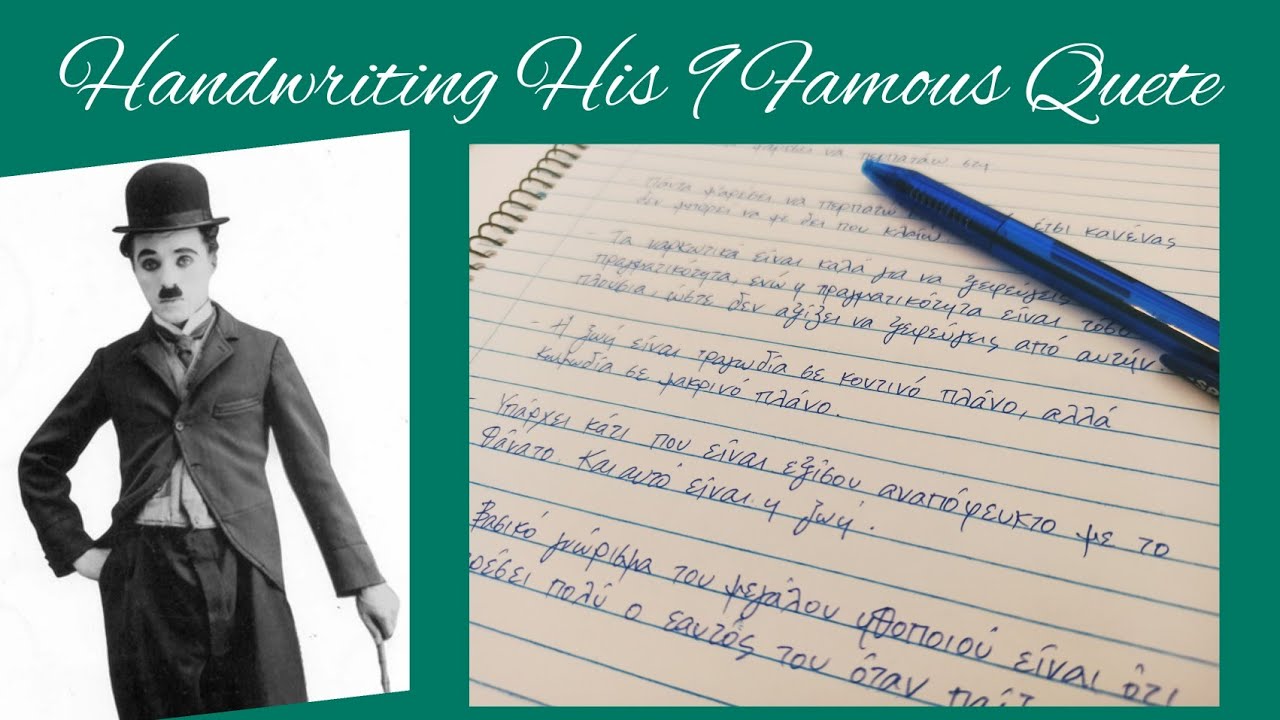 Handwriting His 9 Famous Quete
να περπατάω στη
Πάντα μ'αρέσει να περπατάω έτσι κανένας
δεν μπορεί να με δει που κλαίω.
- Τα ναρκωτικά είναι καλά για να ξεφεύγεις
πραγματικότητα, ενώ η πραγματικότητα είναι τόσο
πλούσια, ώστε δεν αξίζει να ξεφεύγεις από αυτήν.
- Η ζωή είναι τραγωδία σε κοντινό πλάνο, αλλά
κωμωδία σε μακρινό πλάνο.
- Υπάρχει κάτι που είναι εξίσου αναπόφευκτο με το
θάνατο. Και αυτό είναι η ζωή.
Βασικό γνώρισμα του μεγάλου ηθοποιού είναι ότι
ρέσει πολύ ο εαυτός του όταν παίζ